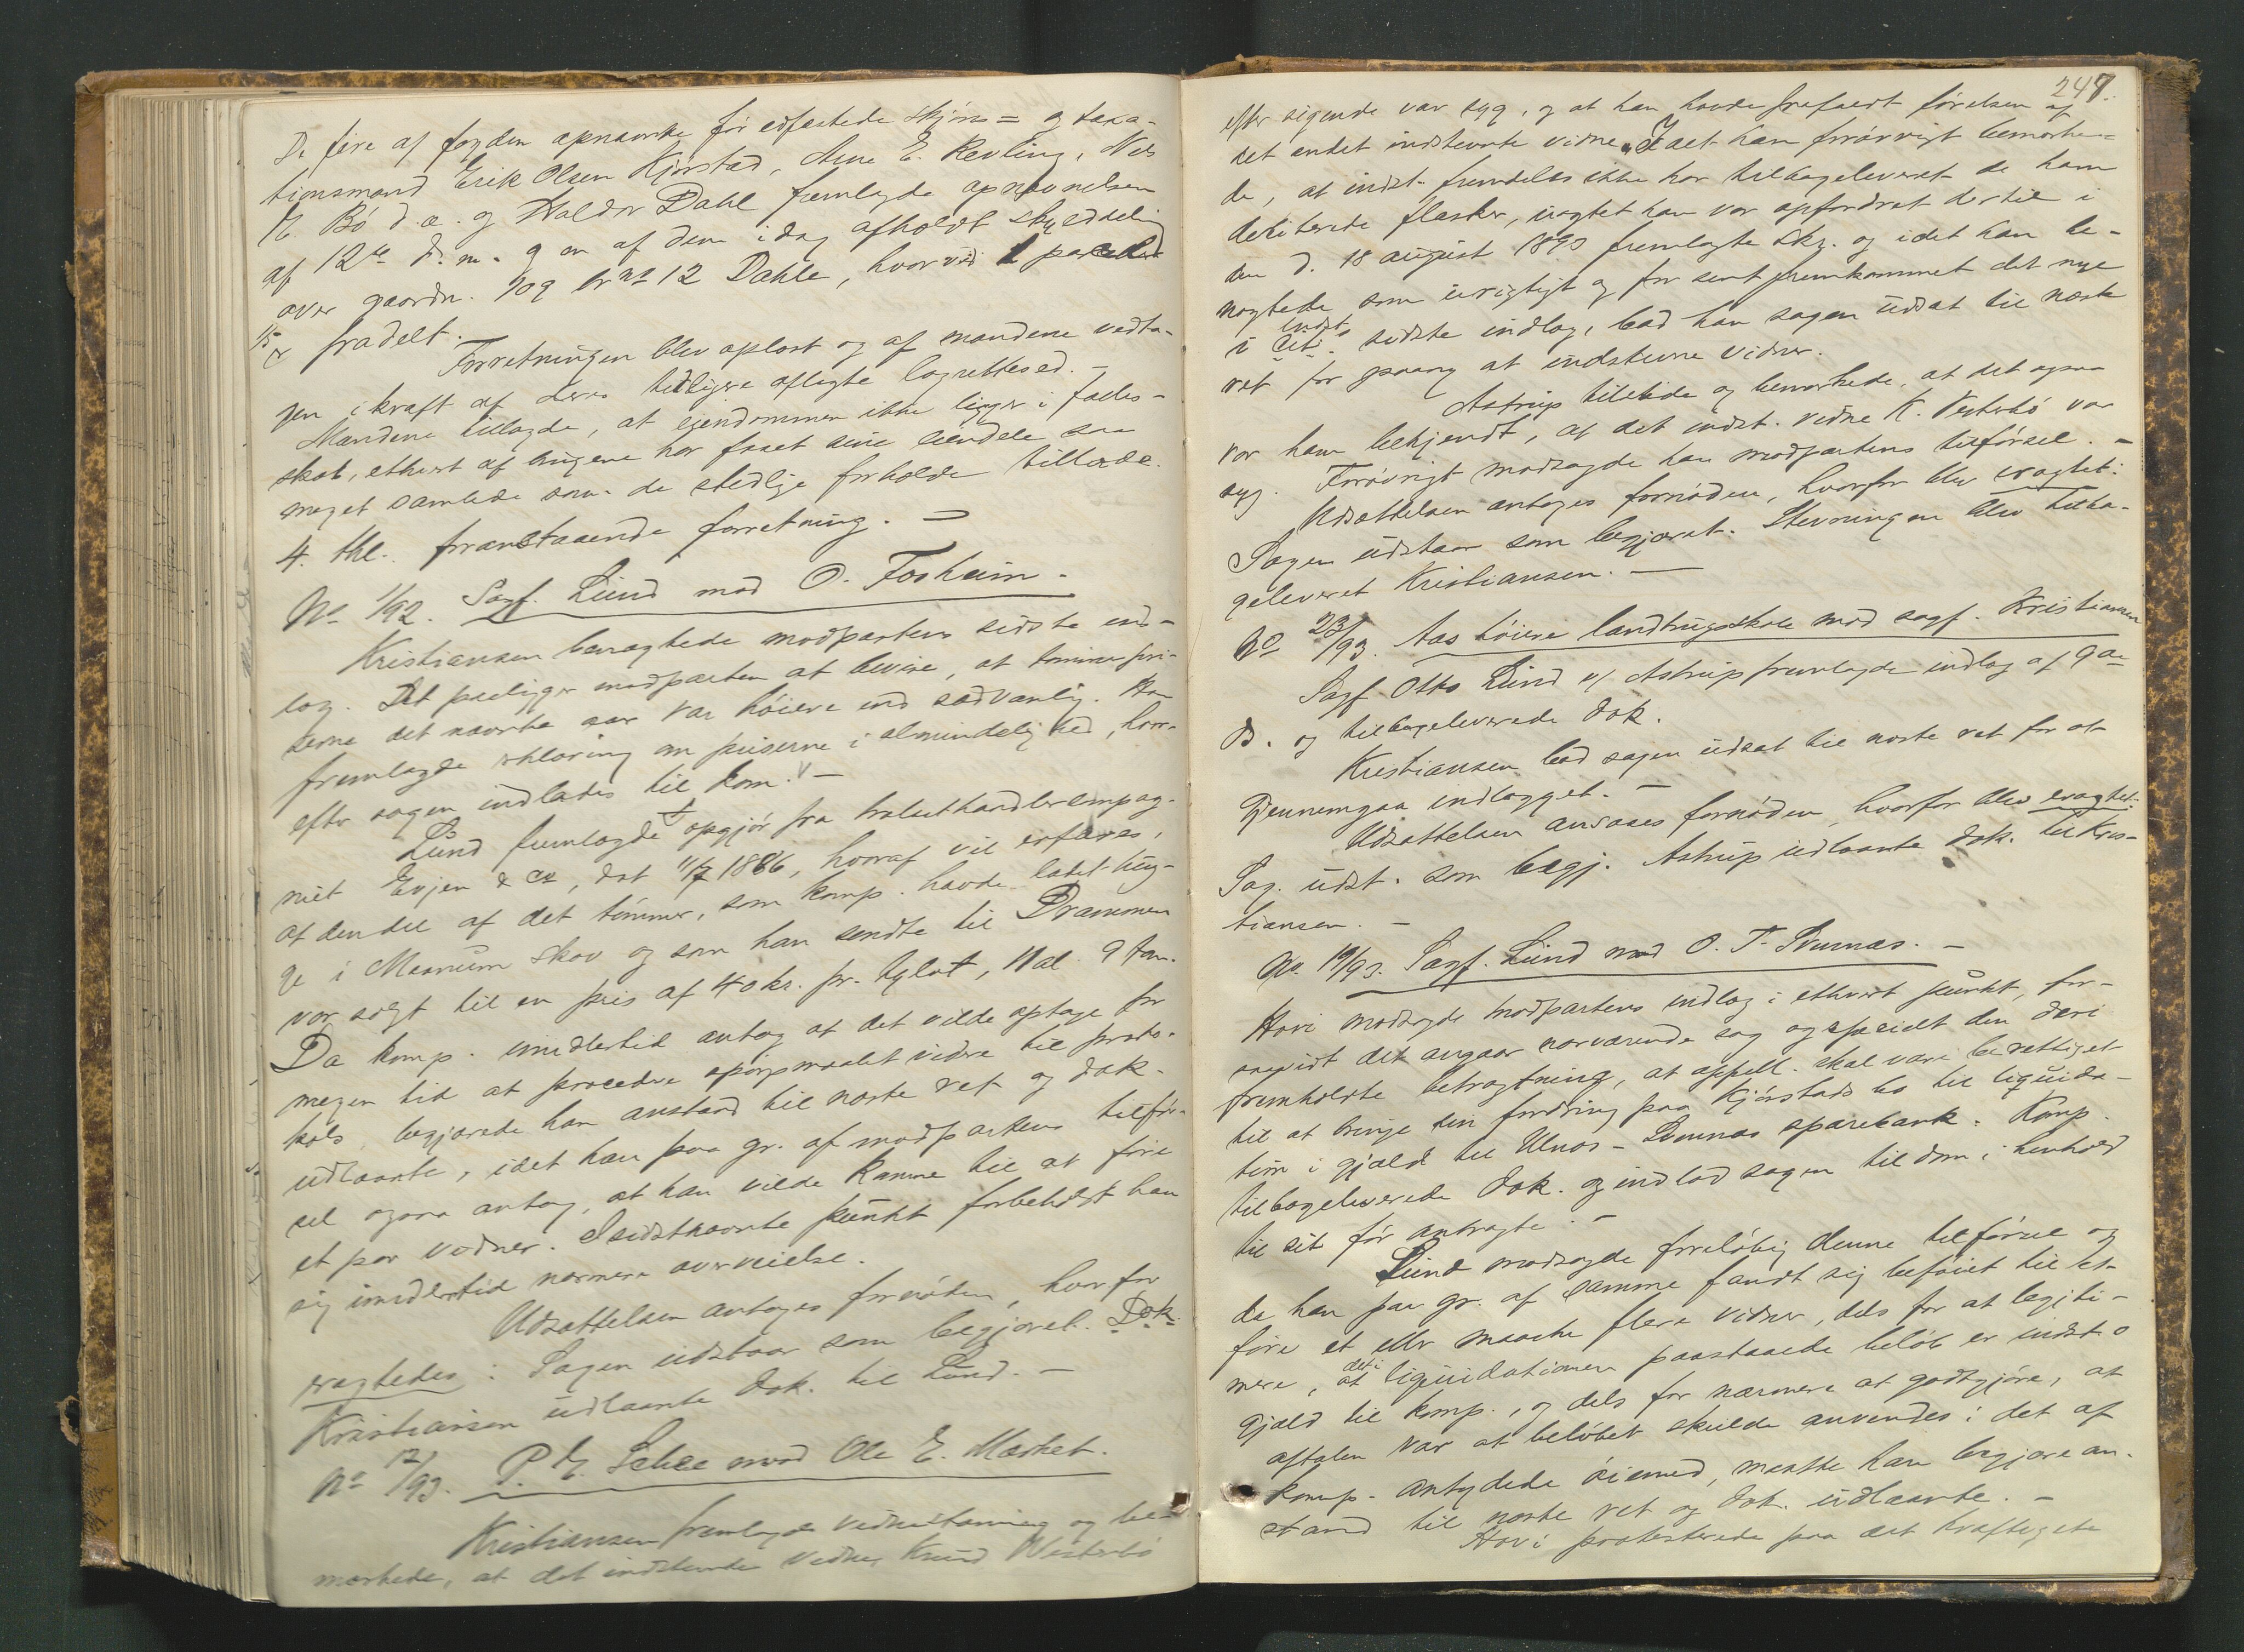 De fire af fogden opnævnte før edfæstede skjøns= og taxa-
tionsmænd Erik Olsen Kjørstad, Arne E. Revling, Nils
N. Bø d.æ. og Haldor Dahl fremlagde opnævnelsen
af 12te d.m. og en af dem idag afholdt skylddeling
over gaardn. 109 brno 12 Dahle, hvorved 1 parcel
er fradelt.
Forretningen blev oplæst og af mændene vedta-
gen i kraft af deres tidligere aflagte lagrettesed. -
Mændene tillagde, at eiendommen ikke ligger i fælles-
skab, ethvert af brugene har faaet sine eiendele saa
meget samlede som de stedlige forholde tillade.
4. thl. foranstaaende forretning. =
No 1/92. Sagf. Lund mod O. Fosheim.
Kristiansen benægtede modpartens sidste ind-
læg. Det paaligger modparten at bevise, at tømmerpri-
serne det nævnte aar var høiere end sædvanlig. Han
fremlagde erklæring om priserne i almindelighed, hvor-
efter sagen indlades til kom. -
Lund fremlagde opgjør fra trælasthandlerkompag-
niet Evjen & Co, dat 11/7 1886, hvoraf vil erfares,
at den del af det tømmer, som komp. havde ladet hug-
ge i Mæhum skov og som han sendte til Drammen
var solgt til en pris af 40 kr. pr. tylvt, 11 al. 9 tom.
Da komp. imidlertid antog at det vilde optage for
megen tid at procedere spørgsmaalet videre til proto-
kols, begjærede han anstand til næste ret og dok.
udlaante, idet han paa gr. af modpartens tilfør-
sel ogsaa antog, at han vilde komme til at føre
et par vidner. I sidstnævnte punkt forbeholdt han
sig imidlertid nærmere overveielse.
Udsættelsen antoges fornøden, hvorfor
eragtedes: Sagen udstaar som begjæret. Dok.
Kristiansen udlaante dok. til Lund. -
No 12/93. P. E. Schee mod Ole E. Mærket.
Kristiansen fremlagde vidnestævning og be-
mærkede, at det indstevnte vidne Knud Westerbø
247.
efter sigende var syg, og at han havde frafaldt førelsen af
det andet indstevnte vidne. Idet han forøvrigt bemærke-
de, at indst. fremdeles ikke har tilbageleveret de ham
debiterede flasker, uagtet han var opfordret dertil i
den d. 18 august 1890 fremlagte skr. og idet han be-
nægtede som urigtigt og for sent fremkommet det nye
i indst. sidste indlæg, bad han sagen udsat til næste
ret for paany at indstevne vidner.
Astrup tilstede og bemærkede, at det ogsaa
var ham bekjendt, at det indst. vidne K. Vesterbø var
syg. Forøvrigt modsagde han modpartens tilførsel. -
Udsættelsen antoges fornøden, hvorfor blev eragtet:
Sagen udstaar som begjæret. Stevningen blev tilba-
geleveret Kristiansen. -
No 23/93. Aas høiere landbrugsskole mod sagf. Kristiansen
Sagf. Otto Lund v/ Astrup fremlagde indlæg af 9de
ds. og tilbageleverede dok.
Kristiansen bad sagen udsat til næste ret for at
gjennemgaa indlægget. -
Udsættelsen ansaaes fornøden, hvorfor blev eragtet:
Sag. udst. som begj. Astrup udlaante dok. til Kris-
tiansen. -
No. 19/93. Sagf. Lund mod O. T. Svennæs. -
Hovi modsagde modpartens indlæg i ethvert punkt, for-
saavidt det angaar nærværende sag og specielt den deri
fremholdte betragtning, at appell. skal være berettiget
til at bringe sin fordring paa Kjørstads bo til liquida-
tion i gjæld til Ulnæs-Svennæs sparebank. Komp.
tilbageleverede dok. og indlod sagen til dom i henhold
til sit før antragte. -
Lund modsagde foreløbig denne tilførsel og
da han paa gr. af samme fandt sig beføiet til at
føre et eller maaske flere vidner, dels for at legiti-
mere, at det i liquidationen paastaaede beløb er indst.s
gjæld til komp., og dels for nærmere at godtgjøre, at
aftalen var at beløbet skulde anvendes i det af
komp. antydede øiemed, maatte han begjære an-
stand til næste ret og dok. udlaante. -
Hovi protesterede paa det kraftigste